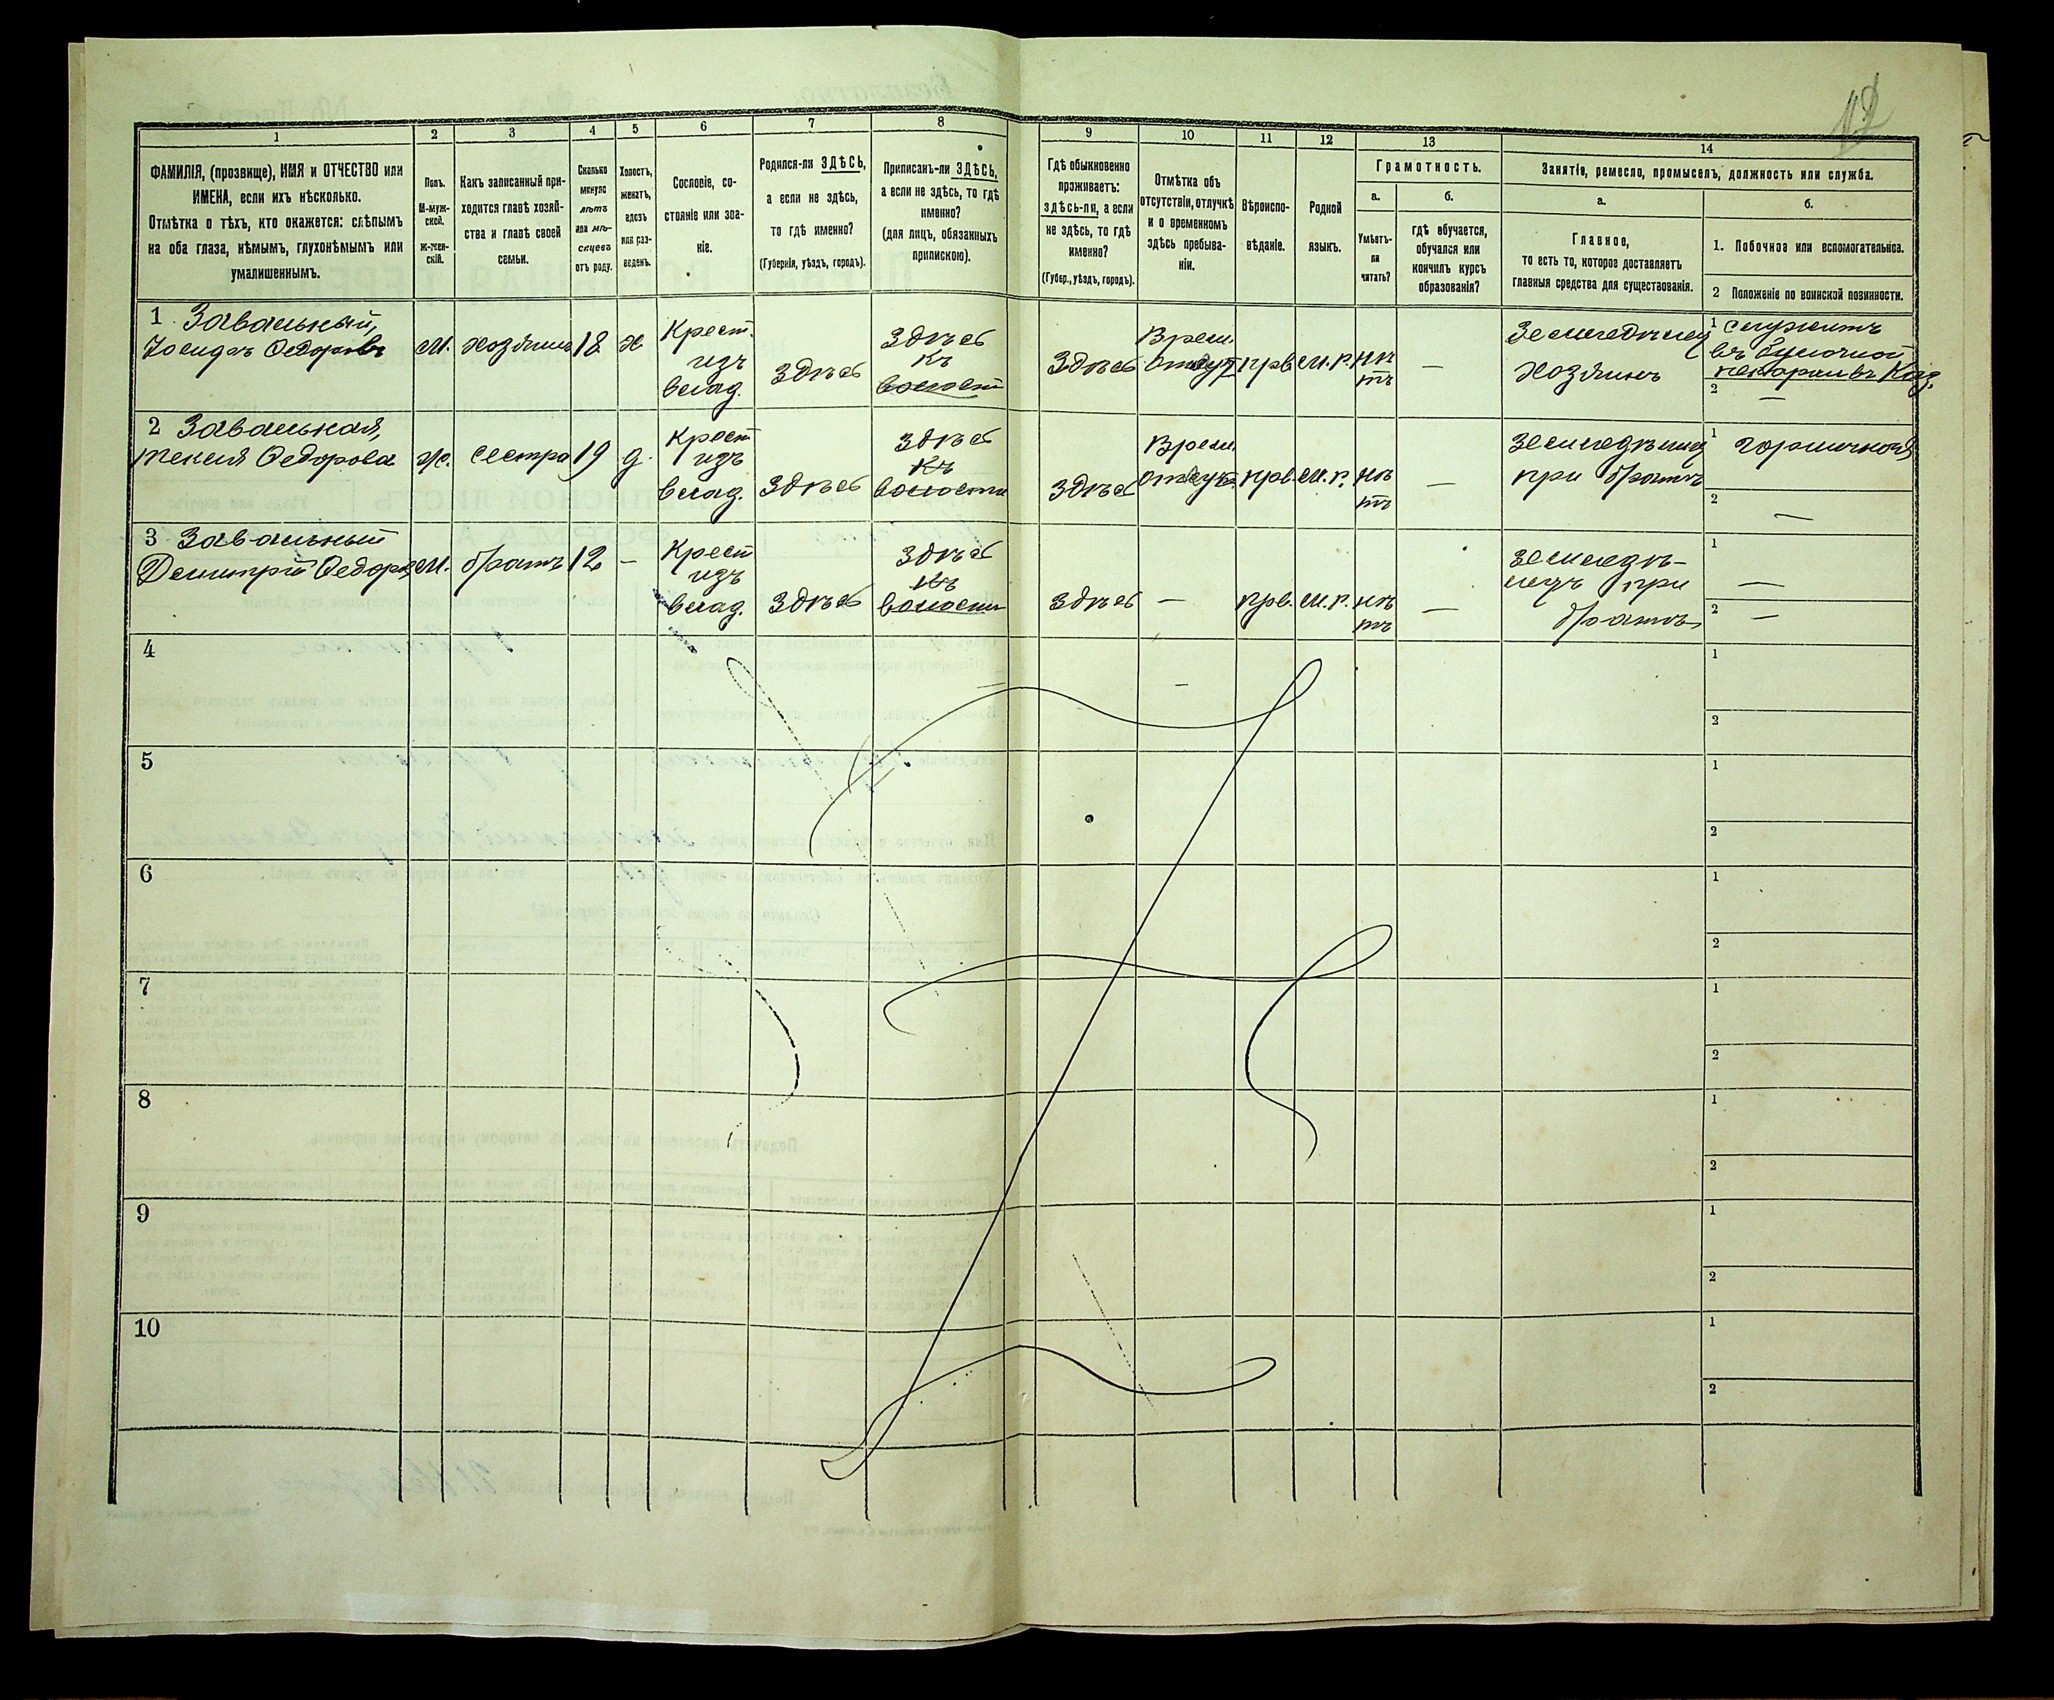 12
1
2
3
4
5
6
7
8
9
10
11
12
13
14
ФАМИЛІЯ, (прозвище), ИМЯ и ОТЧЕСТВО или
ИМЕНА, если ихъ нѣсколько.
Отмѣтка о тѣхъ, кто окажется: слѣпымъ
на оба глаза, нѣмымъ, глухонѣмымъ или
умалишеннымъ.
Полъ.
М-муж-
ской.
Ж-жен-
скій.
Какъ записанный при-
ходится главѣ хозяй-
ства и главѣ своей
семьи.
Сколько
минуло
лѣтъ
или мѣ-
сяцевъ
отъ роду.
Холостъ,
женатъ,
вдовъ
или раз-
веденъ.
Сословіе, со-
стояніе или зва-
ніе.
Родился-ли ЗДѢСЬ,
а если не здѣсь,
то гдѣ именно?
(Губернія, уѣздъ, городъ).
Приписанъ-ли ЗДѢСЬ,
а если не здѣсь, то гдѣ
именно?
(для лицъ, обязанныхъ
припискою).
Гдѣ обыкновенно
проживаетъ:
здѣсь-ли, а если
не здѣсь, то гдѣ
именно?
(Губер., уѣздъ, городъ).
Отмѣтка объ
отсутствіи, отлучкѣ
и о временномъ
здѣсь пребыва-
ніи.
Вѣроиспо-
вѣданіе.
Родной
языкъ.
Грамотность.
а.
б.
Умѣетъ-
ли
читать?
гдѣ обучается,
обучался или
кончилъ курсъ
образованія?
Занятіе, ремесло, промыселъ, должность или служба.
а.
б.
Главное,
то есть то, которое доставляетъ
главныя средства для существованія.
1. Побочное или вспомогательное.
2 Положеніе по воинской повинности.
1 Завальный,
Іосифъ Ѳедоровъ
м.
хозяинъ
18
х
Крест.
изъ
влад.
Здѣсь
Здѣсь
къ
волости
Здѣсь
Врем.
отсут
прв.
м. р.
нѣ
тъ
—
Земледѣлец
хозяинъ
1 служитъ
въ булочной
2 —
2 Завальная,
Ѳедорова
ж.
сестра
19
д.
Крест
изъ
влад.
Здѣсь
Здѣсь
къ
волости
Здѣсь
Врем.
отсут.
прв.
м. р.
нѣ
тъ
—
земледѣлица
при братѣ
1 горничной
2 —
3 Завальный
Дмитрій Ѳедоров
м.
братъ
12
—
Крест
изъ
влад.
Здѣсь
Здѣсь
къ
волости
Здѣсь
—
прв.
м. р.
нѣ
тъ
—
земледѣ-
лецъ при
братѣ
1 —
2 —
4
1
2
5
1
2
6
1
2
7
1
2
8
1
2
9
1
2
10
1
2